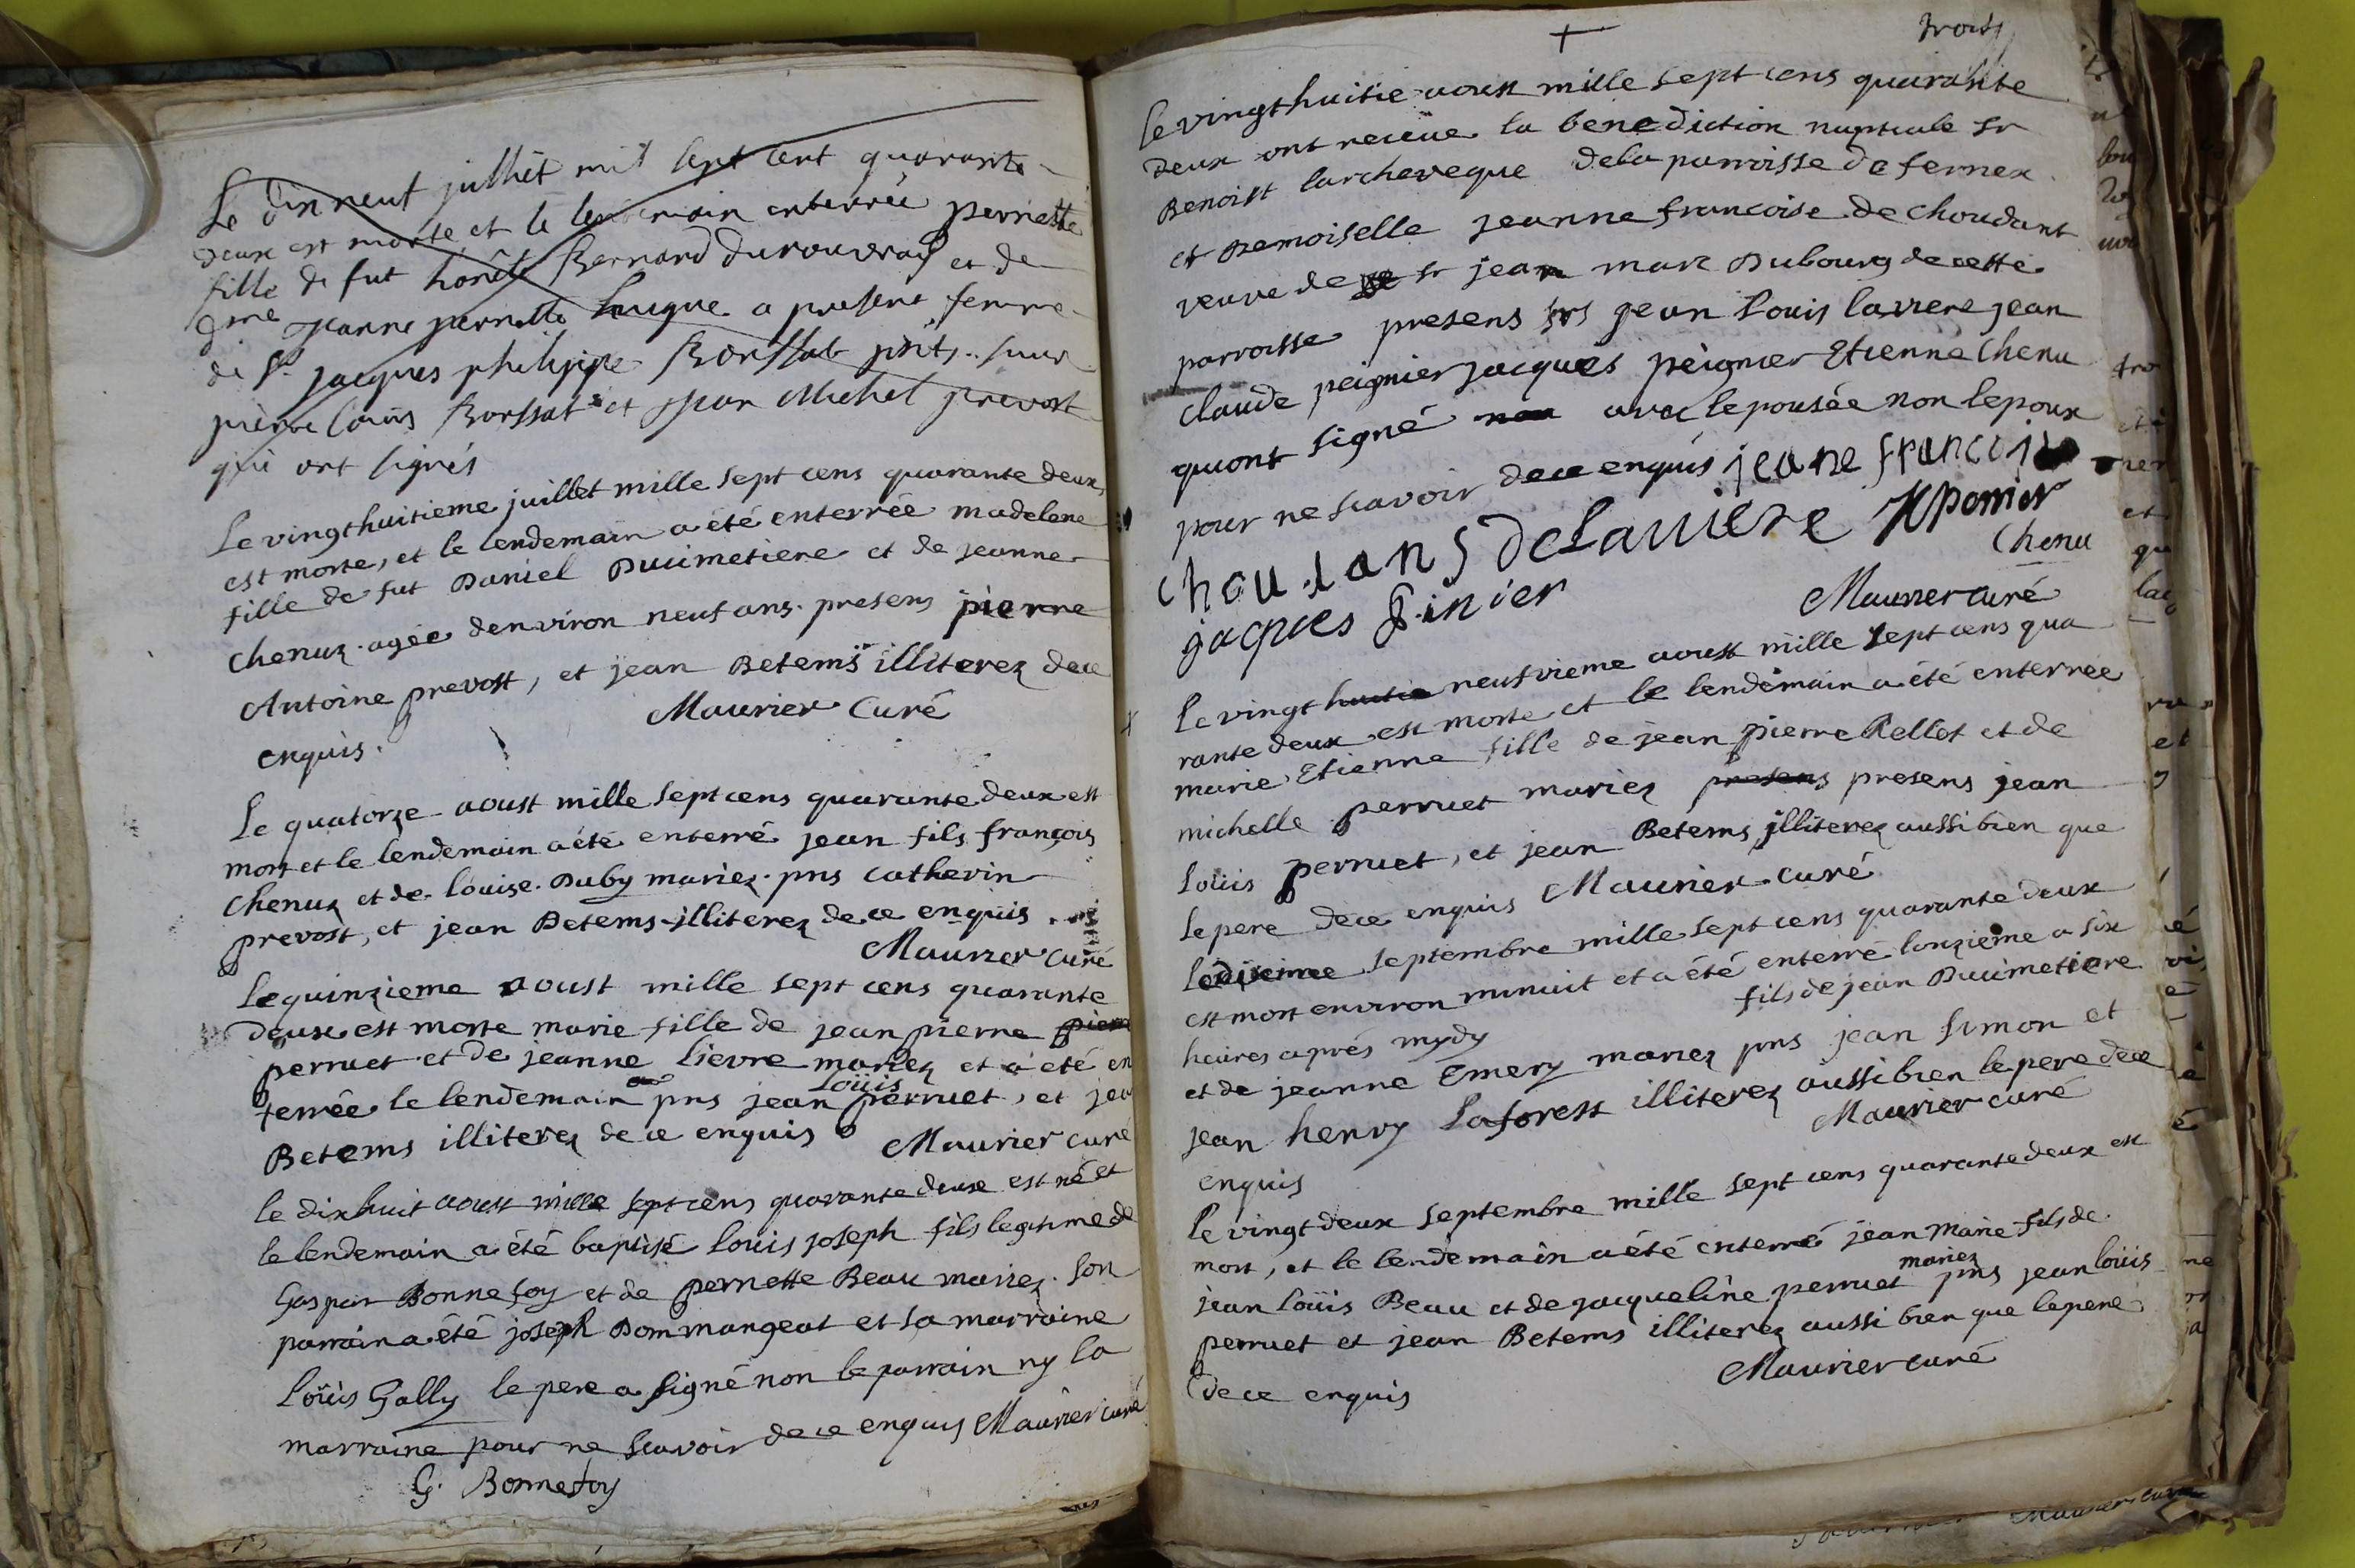 Le dix neuf julliet mil sept cent quarante
deux est morte et le lendemain enterrée pernette
fille de fut honête Bernard Durouvray et de
dme jeanne pernette hugue a present femme
de Sr jacques philippe Borssat pnts. sieur
pierre louis Borssat et jean Michel prevost
qui ont signés
Le vingt huitieme juillet mille sept cens quarante deux,
est morte, et le lendemain a été enterrée madelene
fille de fut Daniel Ducimetiere et de jeanne
chenuz. agée denviron neuf ans. presens pierre
Antoine prevost, et jean Betems illiterez de ce
enquis. Maurier Curé
Le quatorze aoust mille sept cens quarante deux est
mort et le lendemain a été enterré jean fils françois
chenuz et de louise Duby mariez. pns catherin
prevost, et jean Betems illiterez de ce enquis
Maurier curé
Le quinzieme aoust mille sept cens quarante
deux est morte marie fille de jean pierre pierre
perruet et de jeanne lievre mariez et a été en
terrée le lendemain pns jean Loüis perruet, et jean
Betems illiterez de ce enquis Maurier curé
le dix huit aoust mille sept cens quarante deux est né et
le lendemain a été baptisé louis joseph fils legitime de
Gaspar Bonnefoy et de pernette Beau mariez. son
parrain a été joseph Dommangeat et sa marraine
Loüis Gally le pere a signé non le parrain ny la
marraine pour ne scavoir de ce enquis Maurier curé
G. Bonnefoy
trois
le vingt huitie aoust mille sept cens quarante
deux ont receüe la benediction nuptiale sr
Benoist larcheveque de la parroisse de fernex
et Demoiselle jeanne francoise de choudant
veuve de sr jean marc Dubourg de cette
parroisse presens srs jean Louis larriere jean
claude peignier jacques peignier Etienne chenu
qui ont signé non avec lepousée non lepoux
pour ne scavoir de ce enquis jeane francoise
choudans DeLarriere
Chenu
jacques Pinier Maurier curé
Le vingt huitie neufvieme aoust mille sept cens qua
rante deux est morte et le lendemain a été enterrée
marie Etienne fille de jean pierre Rellet et de
michelle perruet mariez presens presens jean
Loüis perruet, et jean Betems illiterez aussi bien que
le pere de ce enquis Maurier curé
Le dixieme septembre mille sept cens quarante deux
est mort environ minuit et a été enterré lonzieme a six
heures aprés mydy fils de jean Ducimetiere
et de jeanne Emery mariez pns jean simon et
jean henry Laforest illiterez aussi bien le pere de ce
enquis Maurier curé
Le vingt deux septembre mille sept cens quarante deux est
mort, et le lendemain a été enterré jean marie fils de
jean Loüis Beau et de jacqueline perruet mariez pns jean loüis
perruet et jean Betems illiterez aussi bien que le pere
de ce enquis Maurier curé